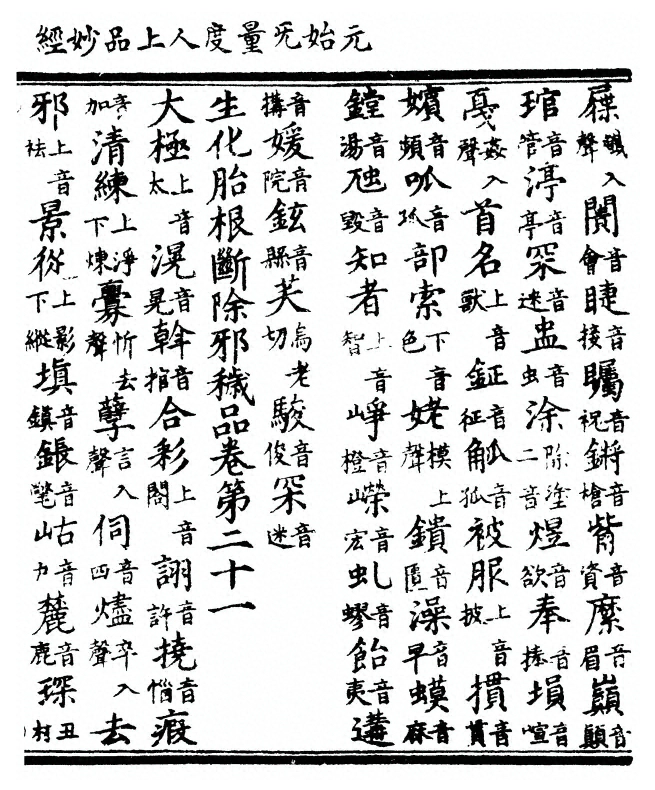 元始无量度人上品妙經
入聲闠音會睫音接矚音祝鏘音槍訾音資縻音眉巔音顛
琯音管渟音亭冞音迷蛊音虫涂除塗二音煜音欲奉音捧塤音喧
戞姦入聲首名上音獸鉦音征觚音狐被服上音披摜音貫
嬪音頻呱音孤部索下音色姥模上聲鐀音匱澡音早蟆音麻
鏜音湯虺音毀知者上音智崢音橙嶸音宏虬音蟉飴音夷遘
音搆媛音院鉉音縣芺烏老切駿音俊冞音迷
生化胎根斷除邪穢品卷第二十一
大極上音太滉音晃斡音捾合彩上音閤詡音許撓音惱瘕
音加清練上淨下煉釁忻去聲孽言入聲伺音四燼卒入聲去
邪上音祛景從上影下縱填音鎮鋹音氅岵音麓音鹿琛丑村